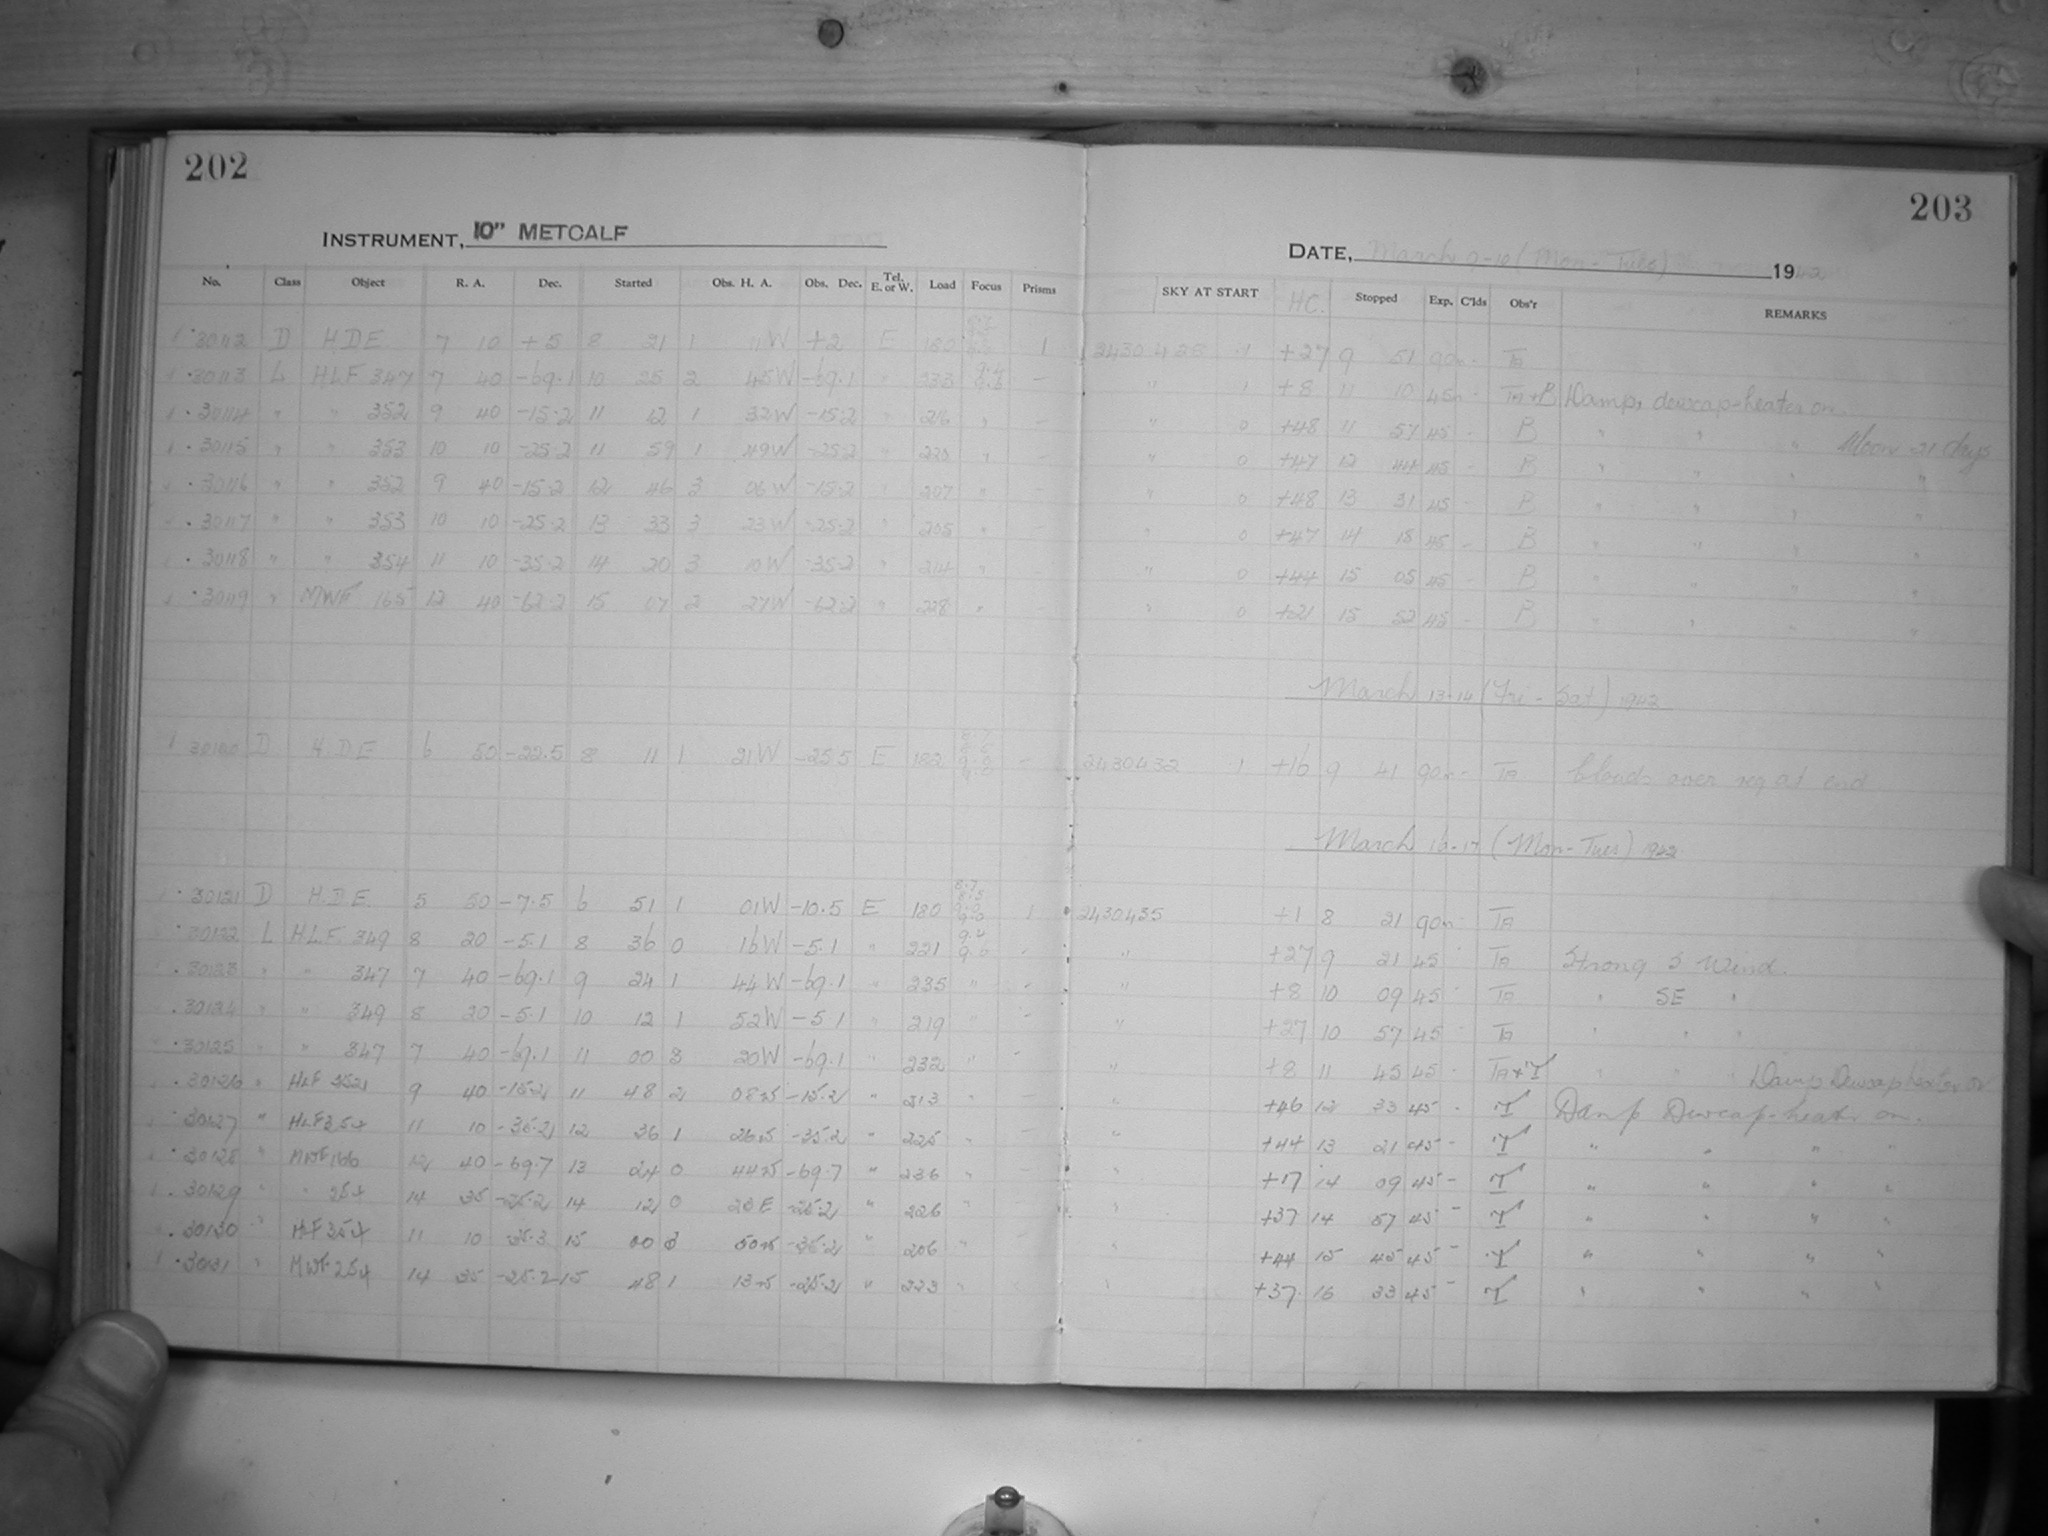 202
203
INSTRUMENT, 10" METCALF
DATE, March 9-10 (Mon - Tues) 1942
No. Class Object R. A. Dec. Started Obs. H. A. Obs. Dec. Tel. E. or W. Load Focus Prisms SKY AT START HC. Stopped Exp. C'lds Obs'r REMARKS
30112 D H D E 7 10 +5 8 21 1 11 W +2 E 180 1 1 +27 9 51 90m - TA
30113 L HLF 347 7 40 -69.1 10 25 2 45W -69.1 " 233 - " 1 +8 11 10 45m - TA+B Damp, dewcap-heater on
30114 " " 352 9 40 -15.2 11 12 1 32W -15.2 " 216 " - " 0 +48 11 57 45 - B " " " Moon -21 days
30115 " " 353 10 10 -25.2 11 59 1 49W -25.2 " " - " 0 +47 12 44 45 - B " " " "
30116 " " 352 9 40 -15.2 12 46 3 06W -15.2 " 207 " - " 0 +48 13 31 45 - B " " " "
30117 " " 353 10 10 -25.2 13 33 3 23W -25.2 " 205 " - " 0 +47 14 18 45 - B " " " "
30118 " " 354 11 10 -35.2 14 20 3 10W -35.2 " 214 " - " 0 +44 15 05 45 - B " " " "
30119 " MWF 165 12 40 -62.2 15 07 2 27W -62.2 " 228 " - " 0 +21 15 52 45 - B " " " "
March 13-14 (Fri - Sat) 1942
30120 D H.D E 6 50 -22.5 8 11 1 21W -25.5 E 182 - 2430432 1 +16 9 41 90m - TA Clouds over reg at end
March 16-17 (Mon - Tues) 1942
30121 D H.D.E. 5 50 -7.5 6 51 1 01W -10.5 E 180 1 2430435 +1 8 21 90m - TA
30122 L HLF 349 8 20 -5.1 8 36 0 16W -5.1 " 221 - " +27 9 21 45 - TA Strong S Wind.
30123 " " 347 7 40 -69.1 9 24 1 44W -69.1 " 235 " - " +8 10 09 45 - TA " SE "
30124 " " 349 8 20 -5.1 10 12 1 52W -5.1 " 219 " - " +27 10 57 45 TA " " "
30125 " " 347 7 40 -69.1 11 00 3 20W -69.1 " 232 " - " +8 11 45 45 - TA+T " " " Damp Dewcap heater on
30126 " HLF 352 9 40 -15.2 11 48 2 08W -15.2 " 213 " - " +46 12 33 45 - T Damp Dewcap-heater on.
30127 " HLF 354 11 10 -35.2 12 36 1 26W -35.2 " 225 " - " +44 13 21 45 - T " " " "
30128 " MWF 166 12 40 -69.7 13 24 0 44W -69.7 " 236 " - " +17 14 09 45 - T " " " "
30129 " " 254 14 35 -25.2 14 12 0 23 E -25.2 " 226 " - " +37 14 57 45 - T " " " "
30130 " HLF 354 11 10 -35.3 15 00 3 50W -35.2 " 206 " - " +44 15 45 45 - T " " " "
30131 " MWF 254 14 35 -25.2 15 48 1 13W -25.2 " 223 " - " +37 16 33 45 - T " " " "